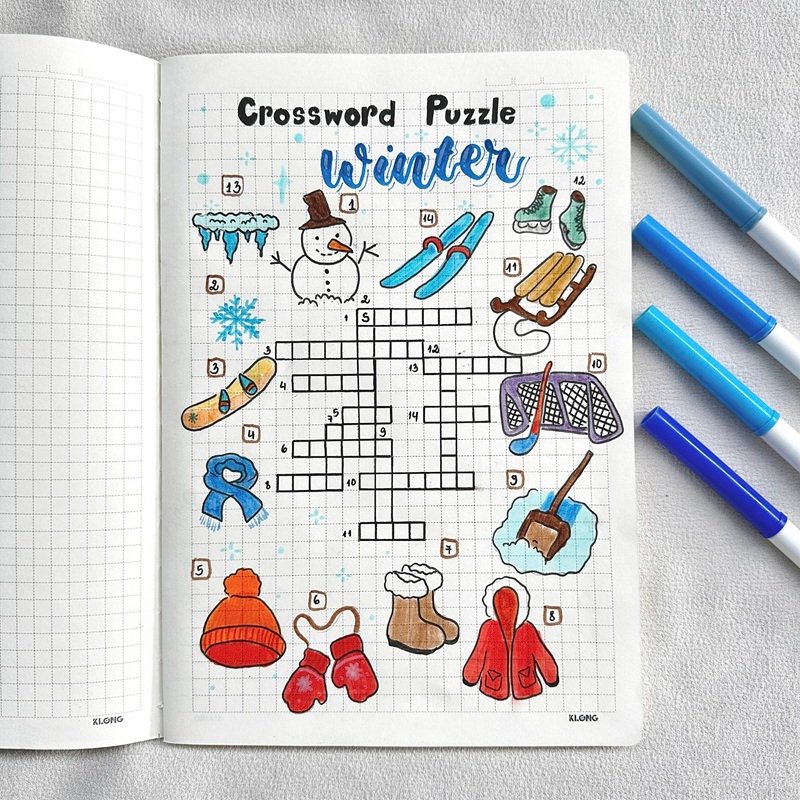 Crossword Puzzle
Winter
13
1
14
12
2
11
2
1 S
3
12
13
3
10
4
5
14
7
4
9
6
8
10
9
11
7
5
6
8
KLONG
KLONG